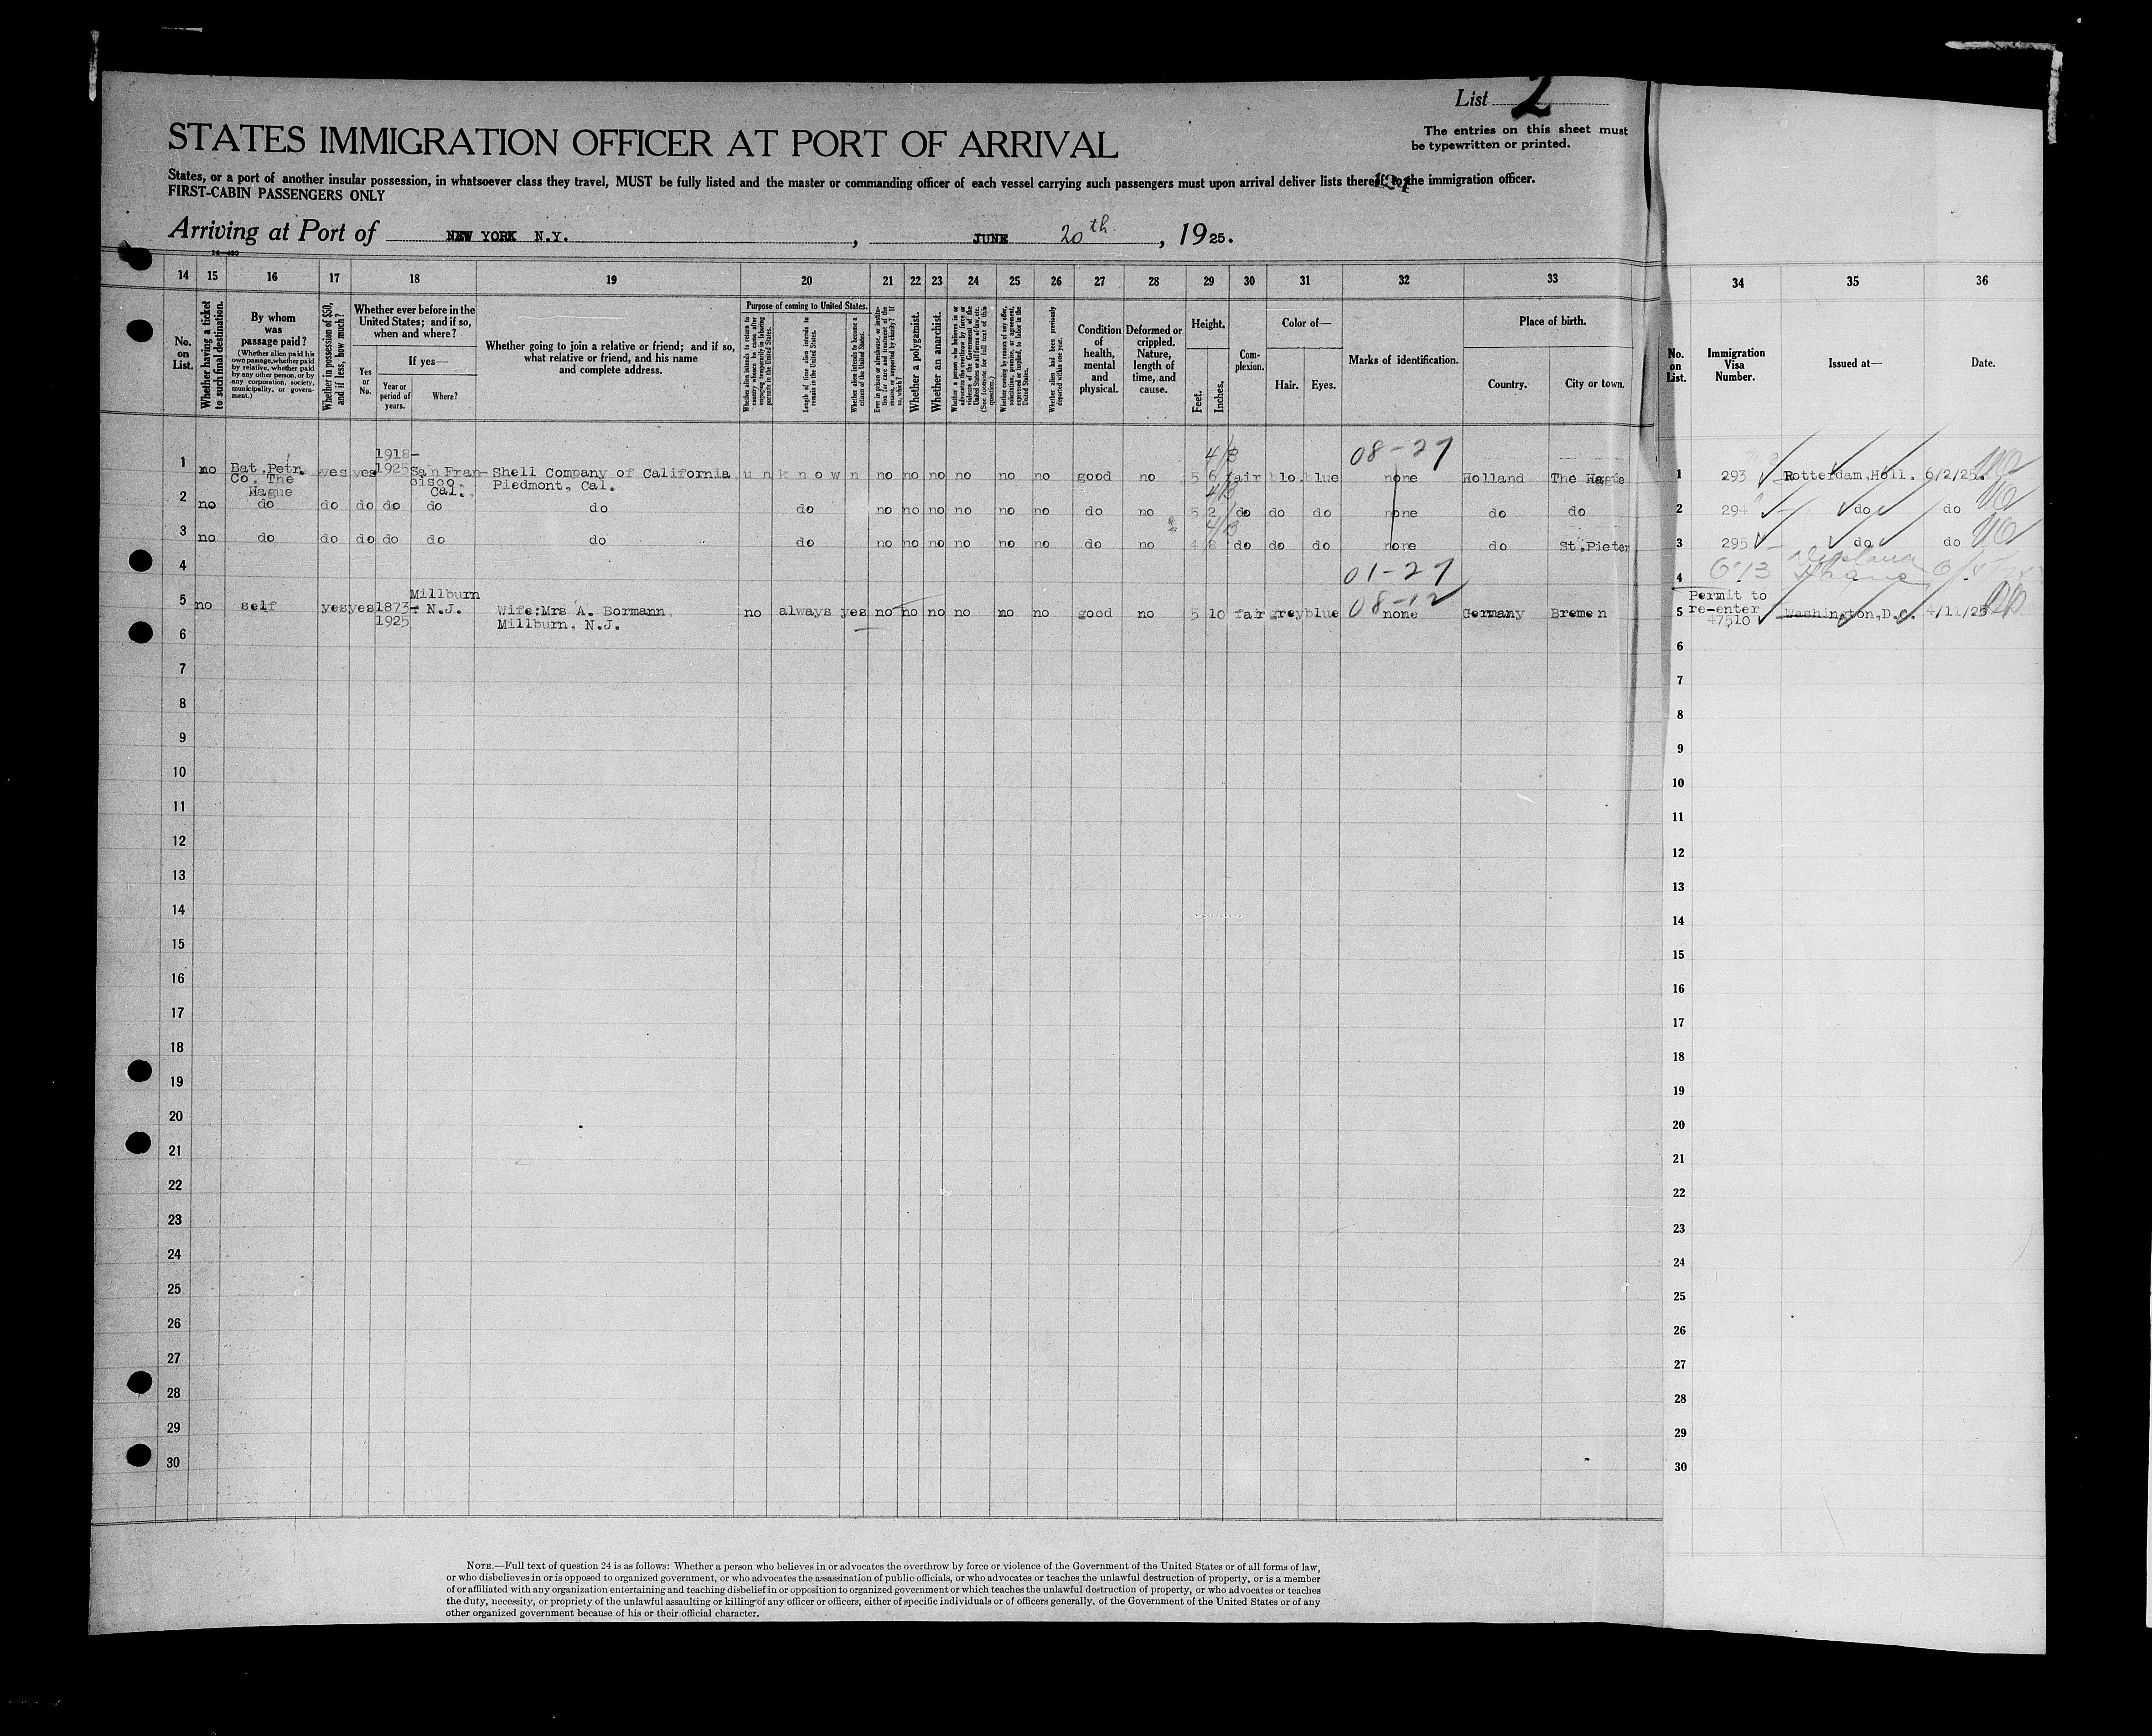 List 2
The entries on this sheet must
be typewritten or printed.
STATES IMMIGRATION OFFICER AT PORT OF ARRIVAL
States, or a port of another insular possession, in whatsoever class they travel, MUST be fully listed and the master or commanding officer of each vessel carrying such passengers must upon arrival deliver lists thereof to the immigration officer.
FIRST-CABIN PASSENGERS ONLY
Arriving at Port of NEW YORK N.Y. , JUNE 20th , 1925.
14 15 16 17 18 19 20 21 22 23 24 25 26 27 28 29 30 31 32 33 34 35 36
No. on List.
Whether having a ticket to such final destination.
By whom was passage paid?
(Whether alien paid his own passage, whether paid by relative, whether paid by any other person, or by any corporation, society, municipality, or government.)
Whether in possession of $50, and if less, how much?
Whether ever before in the United States; and if so, when and where?
Yes or No.
If yes—
Year or period of years.
Where?
Whether going to join a relative or friend; and if so, what relative or friend, and his name and complete address.
Purpose of coming to United States.
Length of time alien intends to remain in the United States.
Whether alien intends to become a citizen of the United States.
Whether a polygamist.
Whether an anarchist.
Whether alien had been previously deported within one year.
Condition of health, mental and physical.
Deformed or crippled. Nature, length of time, and cause.
Height.
Feet.
Inches.
Complexion.
Color of—
Hair.
Eyes.
Marks of identification.
Place of birth.
Country.
City or town.
No. on List.
Immigration Visa Number.
Issued at—
Date.
1 no Bat.Petr. Co. The Hague yes yes 1918-1925 San Francisco Cal. Shell Company of California Piedmont, Cal. unknown no no no no no no good no 5 6 fair blo. blue 08-27 none Holland The Hague 1 293 Rotterdam,Holl. 6/2/25.
2 no do do do do do do do no no no no no no do no 5 2 do do do none do do 2 294 do do
3 no do do do do do do do no no no no no no do no 4 8 do do do none do St.Pieter 3 295 do do
4 01-27 4
5 no self yes yes 1873-1925 Millburn N.J. Wife:Mrs A. Bormann Millburn, N.J. no always yes no no no no no no good no 5 10 fair grey blue 08-12 none Germany Bremen 5 Permit to re-enter 47510 Washington,D.C. 4/11/25
6 6
7 7
8 8
9 9
10 10
11 11
12 12
13 13
14 14
15 15
16 16
17 17
18 18
19 19
20 20
21 21
22 22
23 23
24 24
25 25
26 26
27 27
28 28
29 29
30 30
NOTE.—Full text of question 24 is as follows: Whether a person who believes in or advocates the overthrow by force or violence of the Government of the United States or of all forms of law,
or who disbelieves in or is opposed to organized government, or who advocates the assassination of public officials, or who advocates or teaches the unlawful destruction of property, or is a member
of or affiliated with any organization entertaining and teaching disbelief in or opposition to organized government or which teaches the unlawful destruction of property, or who advocates or teaches
the duty, necessity, or propriety of the unlawful assaulting or killing of any officer or officers, either of specific individuals or of officers generally, of the Government of the United States or of any
other organized government because of his or their official character.